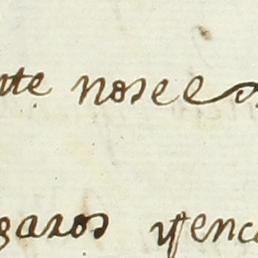 nte nose es
garos y venc